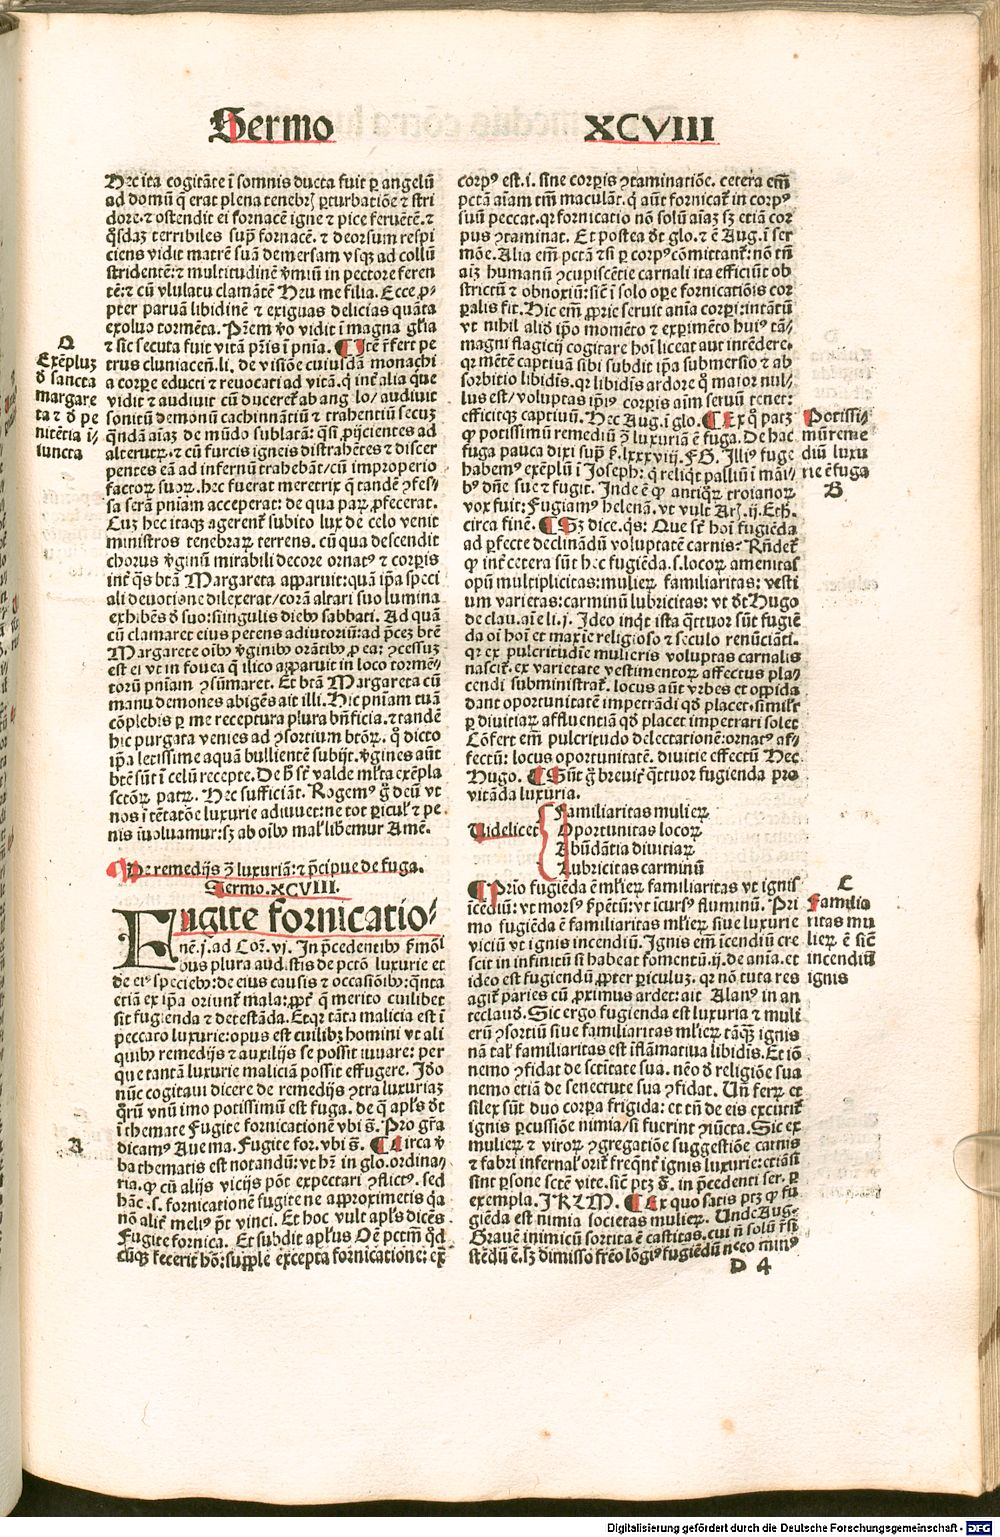 Sermo XCVIII
Hec ita cogitāte ī somnis ducta fuit ꝑ angelū
ad domū q̄ erat plena tenebrꝭ ꝑturbatiōe ⁊ stri
dore. ⁊ ostendit ei fornacē igne ⁊ pice feruētē. ⁊
q̄sdaꝫ terribiles suꝑ fornacē. ⁊ deorsum respi
ciens vidit matrē suā demersam vsqꝫ ad collū
stridentē: ⁊ multitudinē v̄miū in pectore feren
tē: ⁊ cū vlulatu clamātē Heu me filia. Ecce ꝓ
pter paruā libidinē ⁊ exiguas delicias quāta
exoluo tormēta. Pr̄em v̄o vidit ī magna gl̄ia
⁊ sic secuta fuit vitā pr̄is ī pn̄ia. ¶ Itē r̄fert pe
trus cluniaceñ. li. de visiōe cuiusdā monachi
a corpe educti ⁊ reuocati ad vitā. ꝙ int̄ alia que
vidit ⁊ audiuit cū duceret̄ ab ang lo/ audiuit
sonitū demonū cachinnātiū ⁊ trahentiū secuꝫ
q̄ndā aīaꝫ de mūdo sublatā: q̄si ꝓijcientes ad
alterutꝝ. ⁊ cū furcis igneis distrahētes ⁊ discer
pentes eā ad infernū trahebāt/ cū improperio
factoꝝ suoꝝ. hec fuerat meretrix q̄ tandē ꝯfes
sa serā pniam acceperat: de qua paꝝ ꝓfecerat.
Cuꝫ hec itaqꝫ agerent̄ subito lux de celo venit
ministros tenebraꝝ terrens. cū qua descendit
chorus v̄ginū mirabili decore ornatꝰ ⁊ corpis
int̄ q̄s btā Margareta apparuit: quā ip̄a speci
ali deuotione dilexerat/ corā altari suo lumina
exhibēs d̄ suo: singulis diebꝰ sabbati. Ad quā
cū clamaret eius petens adiutoriū: ad p̄ceꝫ btē
Margarete oībꝰ v̄ginibꝰ orātibꝰ ꝓ ea: ꝯcessuꝫ
est ei vt in fouea q̄ ilico apparuit in loco tormē
torū pniam ꝯsūmaret. Et btā Margareta cū
manu demones abigēs ait illi. Hic pniam tuā
cōplebis ꝑ me receptura plura bn̄ficia. ⁊ tandē
hic purgata venies ad ꝯsortium btōꝝ. q̄ dicto
ip̄a letissime aquā bullientē subijt. v̄gines aūt
btē sūt ī celū recepte. De h̄ sr̄ valde ml̄ta exēpla
sctōꝝ patꝝ. Hec sufficiāt. Rogemꝰ g̊ deū vt
nos ī tētatōe luxurie adiuuet: ne tot pericul̄ ⁊ pe
nis īuoluamur: sꝫ ab oībꝰ mal̄ liberemur Amē.
¶ De remedijs ꝯ̄ luxuriā: ⁊ p̄cipue de fuga.
Sermo. XCVIII.
Fugite fornicatio⸗
nē. j. ad Coꝝ. vj. In p̄cedentibꝰ s̄monī
bus plura audistis de pctō luxurie et
de eiꝰ speciebꝰ: de eius causis ⁊ occasiōibꝰ: q̄nta
etiā ex ip̄a oriunt̄ mala: ꝓpt̄ q̄ merito cuilibet
sit fugienda ⁊ detestāda. Etqꝛ tāta malicia est ī
peccato luxurie: opus est cuilibꝫ homini vt ali
quibꝰ remedijs ⁊ auxilijs se possit iuuare: per
que tantā luxurie maliciā possit effugere. Idō
nūc cogitaui dicere de remedijs ꝯtra luxuriaꝫ
q̄rū vnū imo potissimū est fuga. de q̄ apl̄s d̄t
ī themate Fugite fornicationē vbi s̄. Pro gr̄a
dicamꝰ Aue ma. Fugite for. vbi s̄. ¶ Circa v̄
ba thematis est notandū: vt hr̄ in glo. ordina⸗
ria. ꝙ cū alijs vicijs pōt expectari ꝯflictꝰ. sed
hāc. s. fornicationē fugite ne approximetis q̄a
nō alit̄ meliꝰ pt̄ vinci. Et hoc vult apl̄s dicēs
Fugite fornica. Et subdit apl̄us Oē pctm̄ q̄d
cūqꝫ fecerit hō: supple excepta fornicatione: ex̄
corpꝰ est. i. sine corpis ꝯtaminatiōe. cetera em̄
pctā aīam tm̄ maculāt. q̄ aūt fornicat̄ in corpꝰ
suū peccat. qꝛ fornicatio nō solū aīaꝫ sꝫ etiā cor
pus ꝯtaminat. Et postea d̄t glo. ⁊ ē Aug. ī ser
mōe. Alia em̄ pctā ⁊ si ꝑ corpꝰ cōmittant̄: nō tn̄
aīꝫ humanū ꝯcupiscētie carnali ita efficiūt ob
strictū ⁊ obnoxiū: sic̄ ī solo ope fornicatiōis cor
palis fit. Hic em̄ ꝓprie seruit aīa corpi: intātū
vt nihil aliđ ip̄o momēto ⁊ exꝑimēto huiꝰ tā⸗
magni flagicij cogitare hoī liceat aut intēdere.
qꝛ mētē captiuā sibi subdit ip̄a submersio ⁊ ab
sorbitio libidīs. qꝛ libidīs ardore q̄ maior nul⸗
lus est/ voluptas ip̄iꝰ corpis aīm seruū tenet:
efficitqꝫ captiuū. Hec Aug. ī glo. ¶ Ex q̊ patꝫ
ꝙ potissimū remediū ꝯ̄ luxuriā ē fuga. De hac
fuga pauca dixi supra s̄. lxxxviij. FG. Illiꝰ fuge
habemꝰ exēplū ī Joseph: q̄ reliq̄t palliū ī māi⸗
bꝰ dn̄e sue ⁊ fugit. Inde ē ꝙ antiq̄ꝝ troianoꝝ
vox fuit: Fugiamꝰ helenā. vt vult Arꝭ. ij. Eth.
circa finē. ¶ Sꝫ dice. q̄s: Que sr̄ hoī fugiēda
ad ꝑfecte declinādū voluptatē carnis? Rn̄det̄
ꝙ int̄ cetera sūt hec fugiēda. s. locoꝝ amenitas
opū multiplicitas: mulieꝝ familiaritas: vesti
um varietas: carminū lubricitas: vt d̄t Hugo
de clau. aīe li. j. Ideo inq̄t ista q̄ttuor sūt fugiē
da oī hoī et maxīe religioso ⁊ seculo renūciāti.
qꝛ ex pulcritudīe mulieris voluptas carnalis
nascit̄. ex varietate vestimentoꝝ affectus pla⸗
cendi subministrat̄. locus aūt vrbes et oppida
dant oportunitatē impetrādi qđ placet. similr̄
ꝑ diuitiaꝝ affluentiā qđ placet impetrari solet
Cōfert em̄ pulcritudo delectationē: ornatꝰ af⸗
fectū: locus oportunitatē. diuitie effectū Hec
Hugo. ¶ Sūt g̊ breuit̄ q̄ttuor fugienda pro
vitāda luxuria.
Familiaritas mulieꝝ
Videlicet Oportunitas locoꝝ
Abūdātia diuitiaꝝ
Lubricitas carminū
¶ Prīo fugiēda ē ml̄ieꝝ familiaritas vt ignis
īcēdiū: vt morsꝰ s̄pētū: vt īcursꝰ fluminū. Pri
mo fugiēda ē familiaritas ml̄ieꝝ siue luxurie
viciū vt ignis incendiū. Ignis em̄ īcendiū cre
scit in infinitū si habeat fomentū. ij. de anīa. et
ideo est fugiendū ꝓpter ꝑiculuꝫ. qꝛ nō tuta res
agit̄ paries cū ꝓximus ardet: ait Alanꝰ in an
teclauđ. Sic ergo fugienda est luxuria ⁊ muli
erū ꝯsortiū siue familiaritas ml̄ieꝝ tāq̄ꝫ ignis
nā tal̄ familiaritas est īflāmatiua libidīs. Et iō
nemo ꝯfidat de sctītate sua. nēo đ religiōe sua
nemo etiā de senectute sua ꝯfidat. Un̄ ferꝝ et
silex sūt duo corpa frigida: et tn̄ de eis excutit̄
ignis ꝑcussiōe nimia/ si fuerint ꝯiūcta. Sic ex
mulieꝝ ⁊ viroꝝ ꝯgregatiōe suggestiōe carnis
⁊ fabri infernal̄ orit̄ freq̄nt̄ ignis luxurie: etiāsi
sint ꝑsone sctē vite. sic̄ ptꝫ s̄. in p̄cedenti ser. ꝑ
exempla. JKLM. ¶ Ex quo satis ptꝫ ꝙ fu
giēda est nimia societas mulieꝝ. Unde Aug.
Grauē inimicū sortita ē castitas. cui n̄ solū r̄si
stēdū ē. sꝫ dimisso frēo lōgiꝰ fugiēdū nec eo minꝰ
D 4
Q
Exēpluꝫ
đ sancta
margare
ta ⁊ đ pe
nitētia i⸗
iuncta
A
Potissi⸗
mū reme
diū luxu
rie ē fuga
B
C
Familia
ritas mu
lieꝝ ē sic̄
incendiū
ignis
Digitalisierung gefördert durch die Deutsche Forschungsgemeinschaft - DFG